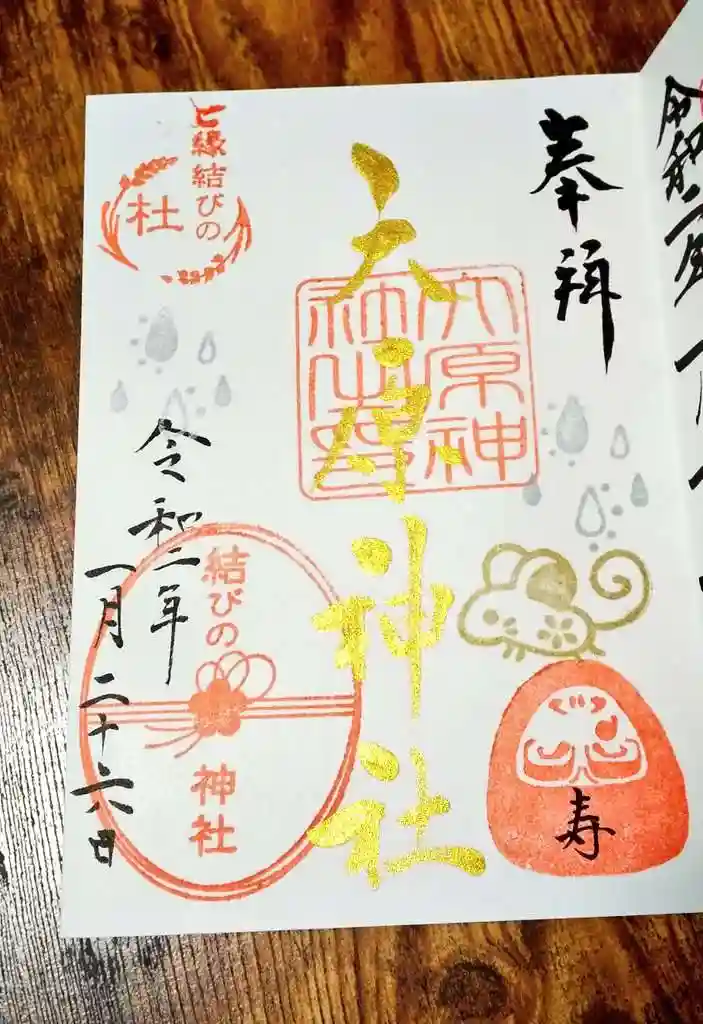 令和二年
奉拝
大原神社
大原神
社之印
寿
縁結びの
杜
結びの
神社
令和二年
一月二十六日